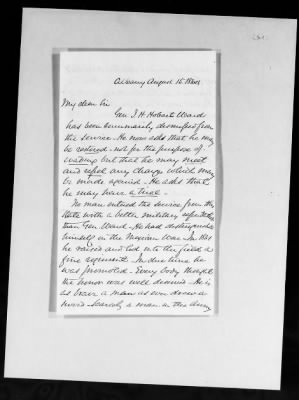 Albany August 15 1864
My dear Sir
Gen. J. H. Hobart Ward
has been summarily dismissed from
the service. He now asks that he may
be restored - not for the purpose of
evading but that he may meet
and repel any charge which may
be made against - He asks that
he may have a trial -
No man entered the service from this
State with a better military reputation
than Gen Ward - He had distinguished
himself in the Mexican War - In 1861
he raised and led into the field a
fine regiment. In due time he
was promoted - Every body thought
the honor was well deserved - He is
as brave a man as ever drew a
sword - Scarcely a man in the Army